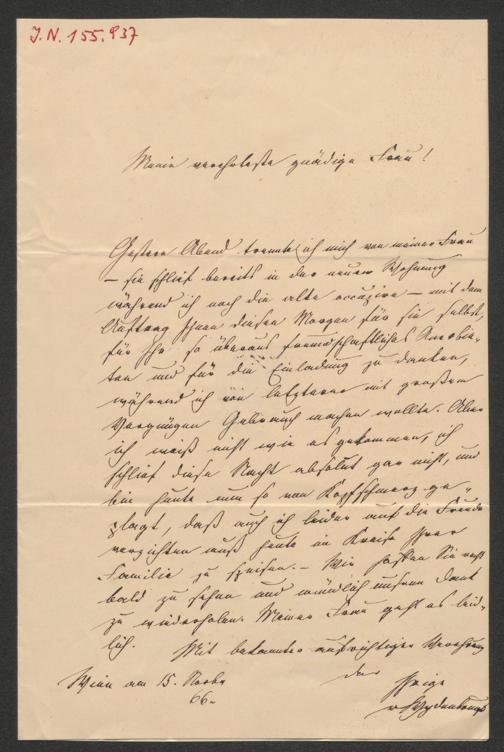 J.N. 155.937
Meine verehrteste gnädige Frau!
Gestern Abend trennte ich mich von meiner Frau
– sie schlief bereits in der neuen Wohnung
während ich noch die alte occupire – mit dem
Auftrag Ihnen diesen Morgen für sie selbst,
für Ihr so überaus freundschaftliches Anerbie-
ten und für die Einladung zu danken,
während ich von letzterer mit großem
Vergnügen Gebrauch machen wollte. Aber
ich weiß nicht wie es gekommen, ich
schlief diese Nacht absolut gar nicht, und
bin heute nun so von Kopfschmerz ge-
plagt, daß auch ich leider auf die Freude
verzichten muß heute im Kreise Ihrer
Familie zu speisen. – Wir hoffen Sie recht
bald zu sehen und mündlich unsern Dank
zu wiederholen. Meiner Frau geht es leid-
lich.
Mit bekannter aufrichtiger Verehrung
der Ihrige
Wien am 15. Novbr
66.